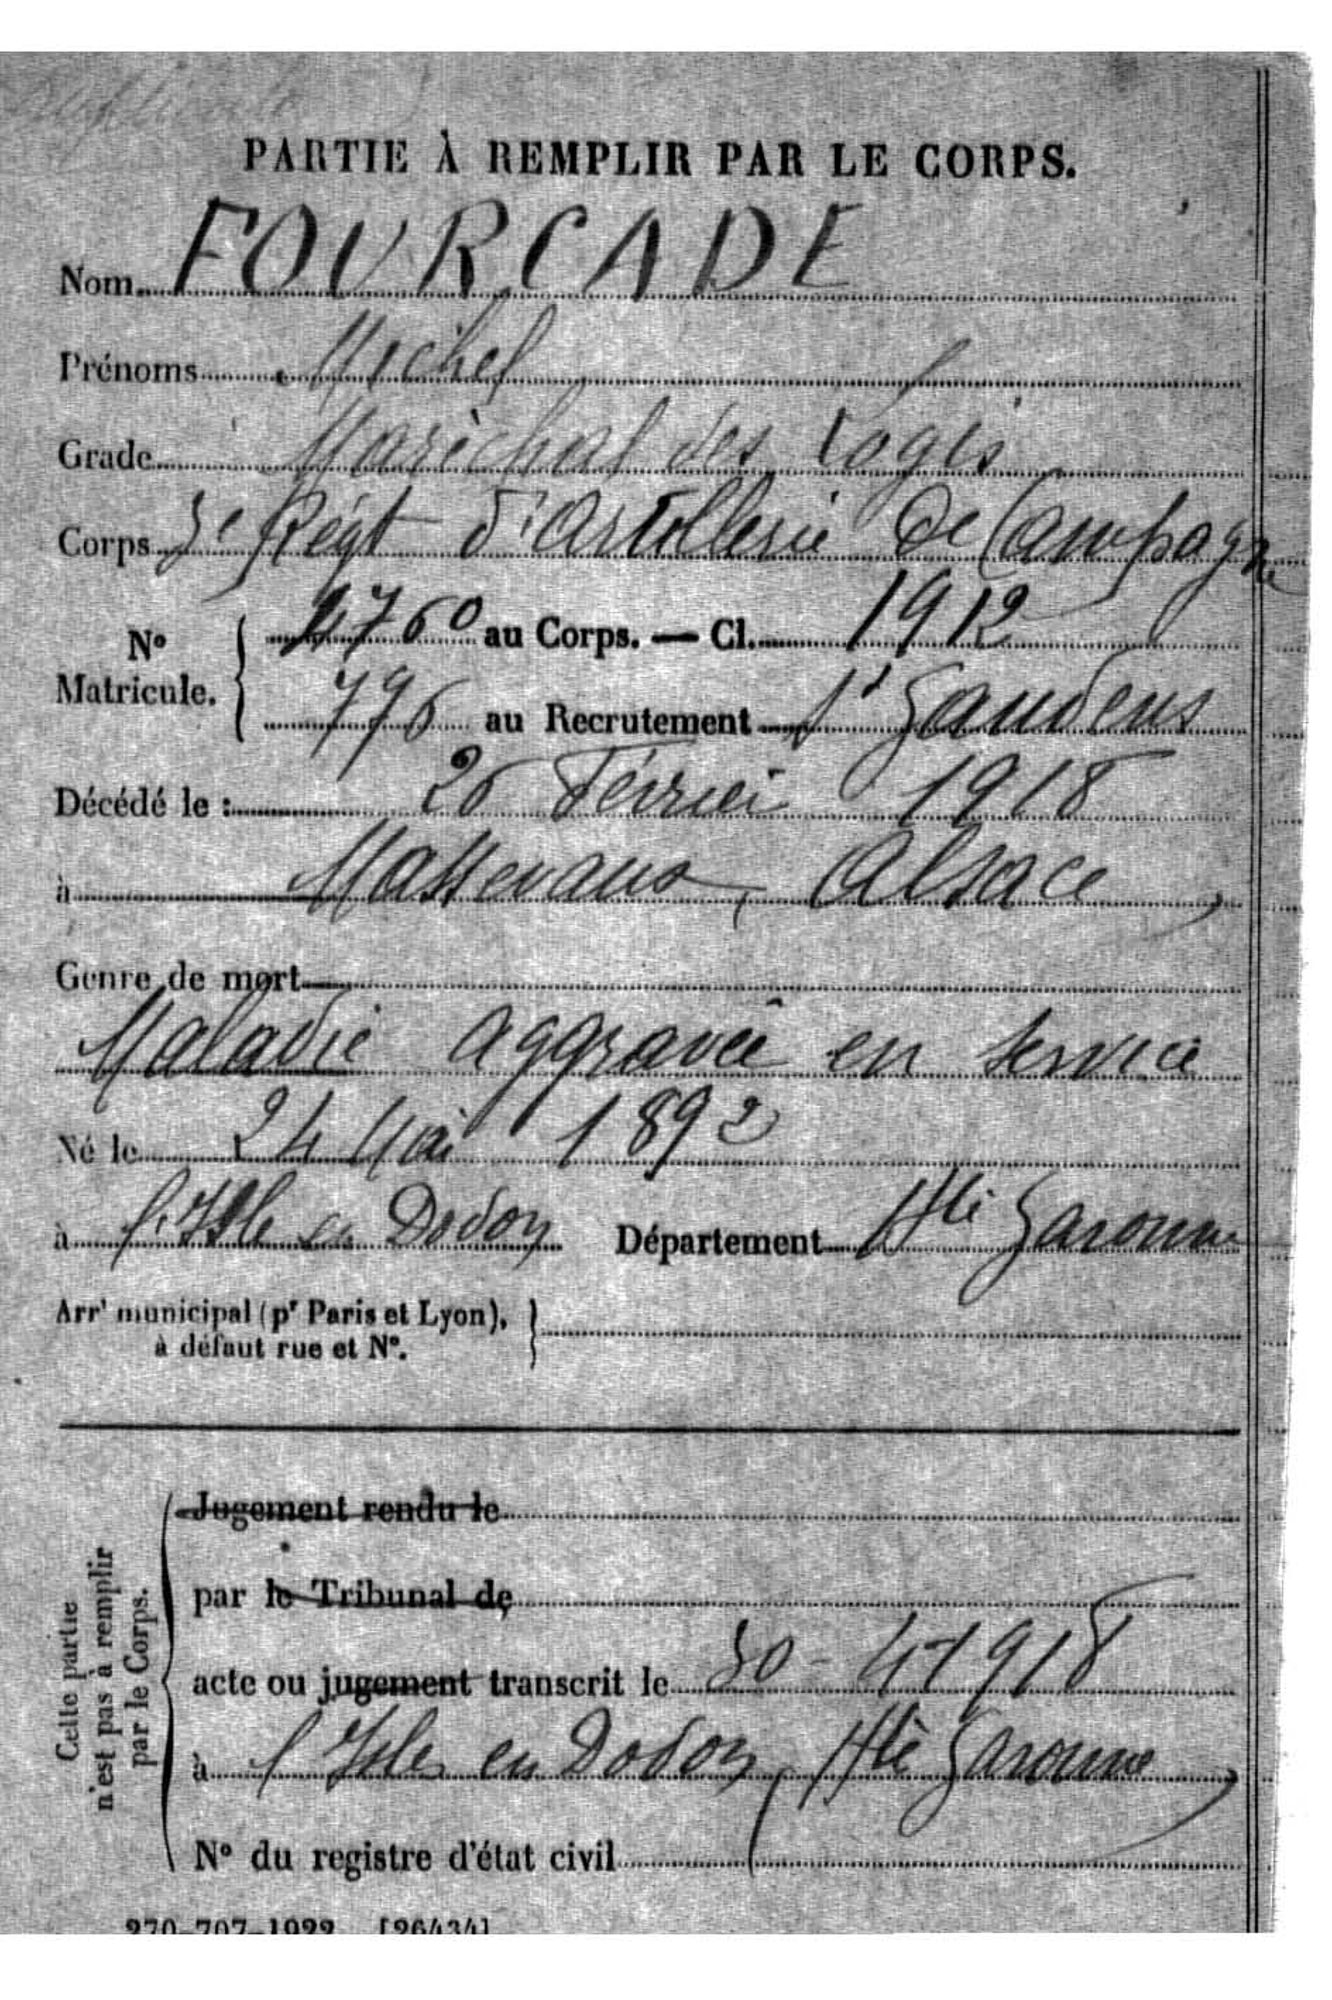 PARTIE À REMPLIR PAR LE CORPS.
Nom FOURCADE
Prénoms Michel
Grade Maréchal des Logis
Corps 3e Régt d'Artillerie de Campagne
No Matricule. 4760 au Corps. — Cl. 1912
796 au Recrutement St Gaudens
Décédé le : 26 Février 1918
à Massevaux, Alsace,
Genre de mort
Maladie aggravée en service
Né le 24 Mai 1892
à l'Isle en Dodon Département Hte Garonne
Arrt municipal (pr Paris et Lyon),
à défaut rue et No.
Cette partie
n'est pas à remplir
par le Corps.
Jugement rendu le
par le Tribunal de
acte ou jugement transcrit le 30-4-1918
à l'Isle en Dodon, Hte Garonne,
No du registre d'état civil
270-707-1922 [26434]